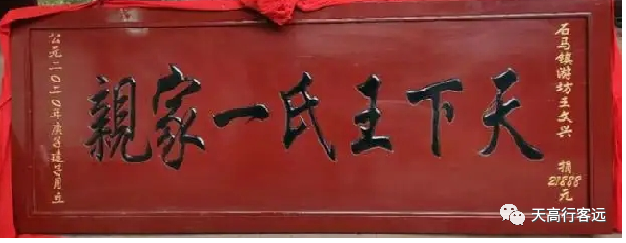 石马镇游坊王文兴 捐
元
天下王氏一家親
公元二〇二〇年庚子 月立
天高行客远